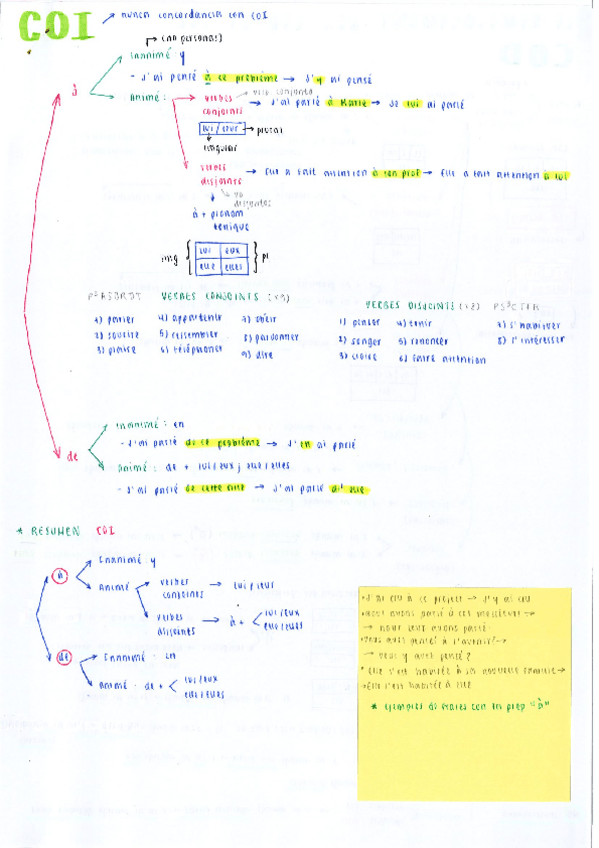 COI → nunca concordancia con COI
(no persona:)
Inanimé : y
- J'ai pensé à ce problème → J'y ai pensé
à
animé :
verbes conjoints
verb. conjoints
→ J'ai parlé à Marie → Je lui ai parlé
lui / leur → plural
singular
verbes disjoints → Elle a fait attention à son prof → Elle a fait attention à lui
à + pronom tonique
sing { lui eux } pl
elle elles
P²ASORDT VERBES CONJOINTS (x9)
1) parler 4) appartenir 7) obéir
2) sourire 5) ressembler 8) pardonner
3) plaire 6) téléphoner 9) dire
VERBES DISJOINTS (x8) PS²CTFR
1) penser 4) tenir 7) s'habituer
2) songer 5) renoncer 8) s'intéresser
3) croire 6) faire attention
de
inanimé : en
- J'ai parlé de ce problème → J'en ai parlé
animé : de + lui/eux ; elle/elles
- J'ai parlé de cette fille → J'ai parlé d'elle
* RESUMEN COI
à
Inanimé y
Animé
verbes conjoints → lui / leur
verbes disjoints → à + lui/eux elle/elles
de
Inanimé : en
animé : de + lui/eux elle/elles
• J'ai cru à ce projet → J'y ai cru
• Nous avons parlé à ces messieurs →
→ nous leur avons parlé
• Vous avez pensé à l'avenir? →
→ vous y avez pensé?
* Elle s'est habituée à sa nouvelle famille →
→ Elle s'est habituée à elle
* Ejemplos de frases con la prep "à"